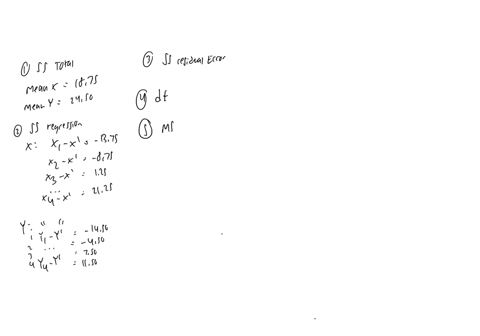 ① SS Total
mean X = 18.75
mean Y = 24.50
② SS regression
X: X₁ - x' = -13.75
x₂ - x' = -8.75
x₃ - x' = 1.25
x₄ - x' = 21.25
Y: " "
1 Y₁ - Y' = -14.50
2 ... = -4.50
3 = 7.50
4 Y₄ - Y' = 11.50
③ SS residual Error
④ df
⑤ MS